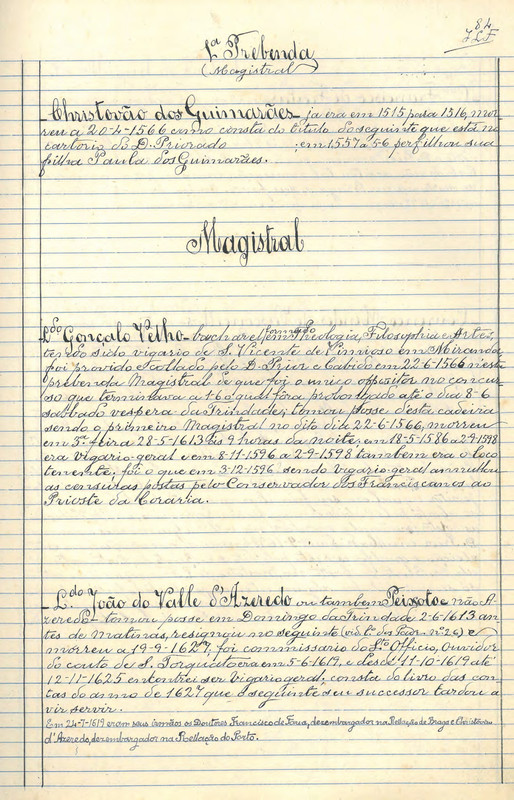 84
J.L.F
1.ª Prebenda
(Magistral)
Christovão dos Guimarães - ja era em 1515 para 1516, mor-
reu a 20-4-1566 como consta do titulo do seguinte que está no
cartorio do D. Priorado em 1557 a 5-6 perfilhou sua
filha Paula dos Guimarães.
Magistral
L.do Gonçalo Velho - bacharel formado em Theologia, Filosophia e Artes,
tendo sido vigario de S. Vicente de Vimioso em Miranda,
foi provido e collado pelo D. Prior e Cabido em 22-6-1566 nesta
prebenda Magistral de que foi o unico oppositor no concur-
so que terminava a 1-6 o qual fôra prolongado até o dia 8-6
sabbado vespera da Trindade; tomou posse d'esta cadeira
sendo o primeiro Magistral no dito dia 22-6-1566, morreu
em 3.ª feira 28-5-1613 ás 9 horas da noite; em 18-5-1586 a 2-9-1598
era vigario geral e em 8-11-1596 a 2-9-1598 tambem era o loco
tenente; foi o que em 3-12-1596 sendo vigario geral annullou
as censuras postas pelo Conservador dos Franciscanos ao
Prioste da Coraria.
L.do João do Valle d'Azeredo ou tambem Peixoto e não A-
zeredo - tomou posse em Domingo da Trindade 2-6-1613 an-
tes de matinas, resignou no seguinte (vid. L.º das Pocr. nº 26) e
morreu a 19-9-1627, foi commissario do S.to Officio, Ouvidor
do couto de S. Torquato era em 5-6-1619, e desde 11-10-1619 até
12-11-1625 encontrei ser vigario geral; consta do livro das con-
tas do anno de 1627 que o seguinte seu successor tardou a
vir servir.
Em 24-7-1619 eram seus irmãos os Doutores Francisco de Faria, dezembargador na Rellação de Braga e Christovão
d'Azeredo, dezembargador na Rellação do Porto.